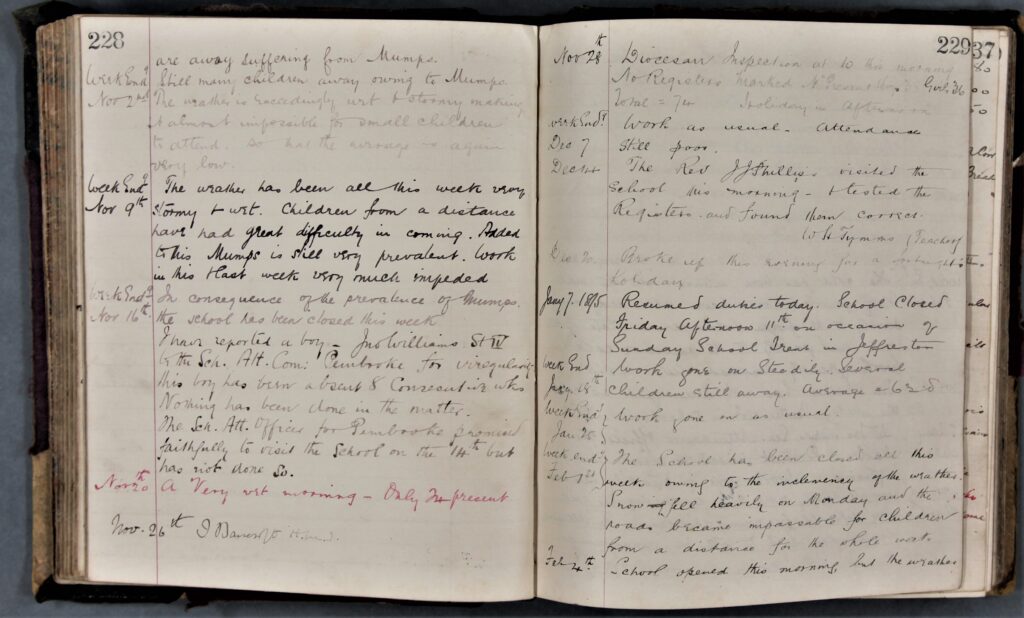 228
are away suffering from Mumps.
Week End^g Still many children away owing to Mumps.
Nov 2nd The weather is exceedingly wet & stormy making
it almost impossible for small children
to attend. so that the average is again
very low.
Week End^g The weather has been all this week very
Nov 9th stormy & wet. Children from a distance
have had great difficulty in coming. Added
to this Mumps is still very prevalent. Work
in this & last week very much impeded
Week End^g In consequence of the prevalence of Mumps.
Nov 16th the school has been closed this week
I have reported a boy - Jno Williams St IV
to the Sch. Att. Com: Pembroke for irregularity
this boy has been absent 8 Consecutive wks
Nothing has been done in the matter.
The Sch. Att. Officer for Pembroke promised
faithfully to visit the School on the 14th but
has not done so.
Nov 20th A Very wet morning - Only 24 present
Nov. 26th J Bancroft
229
Nov 28th Diocesan Inspection at 10 this morning
No Registers Marked Nº Present Boys Girls 36
Total = 74 Holiday in afternoon
Week End^g Work as usual - Attendance
Dec 7 still poor.
Dec 14 The Rev J J Phillips visited the
School this morning - & tested the
Registers and found them correct.
W H Tymms (Teacher)
Dec 20 Broke up this morning for a fortnight's
holiday
Jany 7. 1895 Resumed duties today. School Closed
Friday Afternoon 11th on occasion of
Sunday School Treat in Jeffreston
Week End Work gone on Steadily. Several
Jany 18th children still away. Average = 62.8
Week End^g Work gone on as usual.
Jan 25
Week end^g The School has been closed all this
Feb 1st week owing to the inclemency of the weather.
Snow fell heavily on Monday and the
roads became impassable for children
from a distance for the whole week.
Feb 4th School opened this morning, but the weather
37